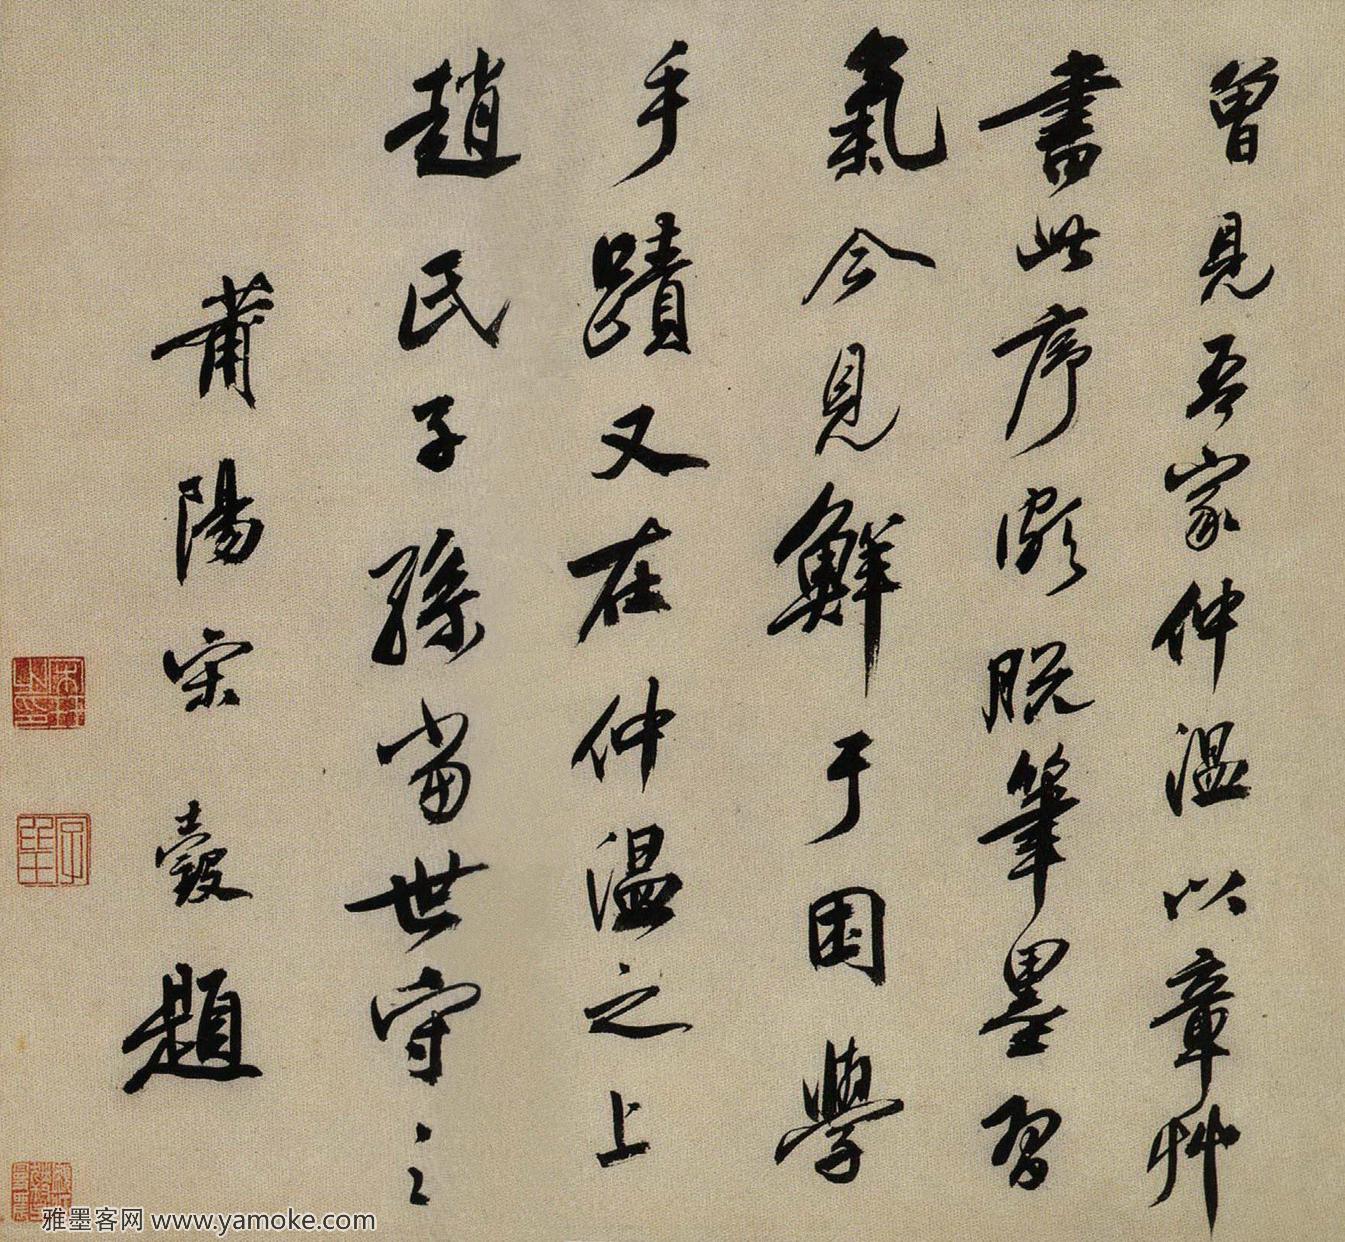 曾見吾家仲温以章艸
書此序頗脱筆墨習
氣今見鮮于困學
手蹟又在仲温之上
趙氏子孫當世守之
莆陽宋瑴題
雅墨客网 www.yamoke.com